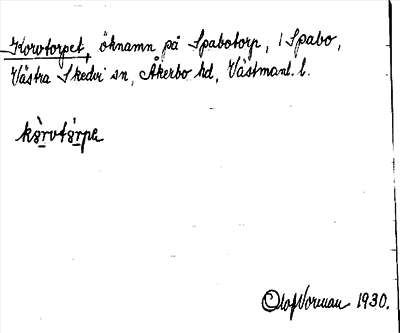 Korvtorpet, öknamn på Spabotorp, i Spabo,
Västra Skedvi sn, Åkerbo hd, Västmanl. l.
Olof Vorman 1930.